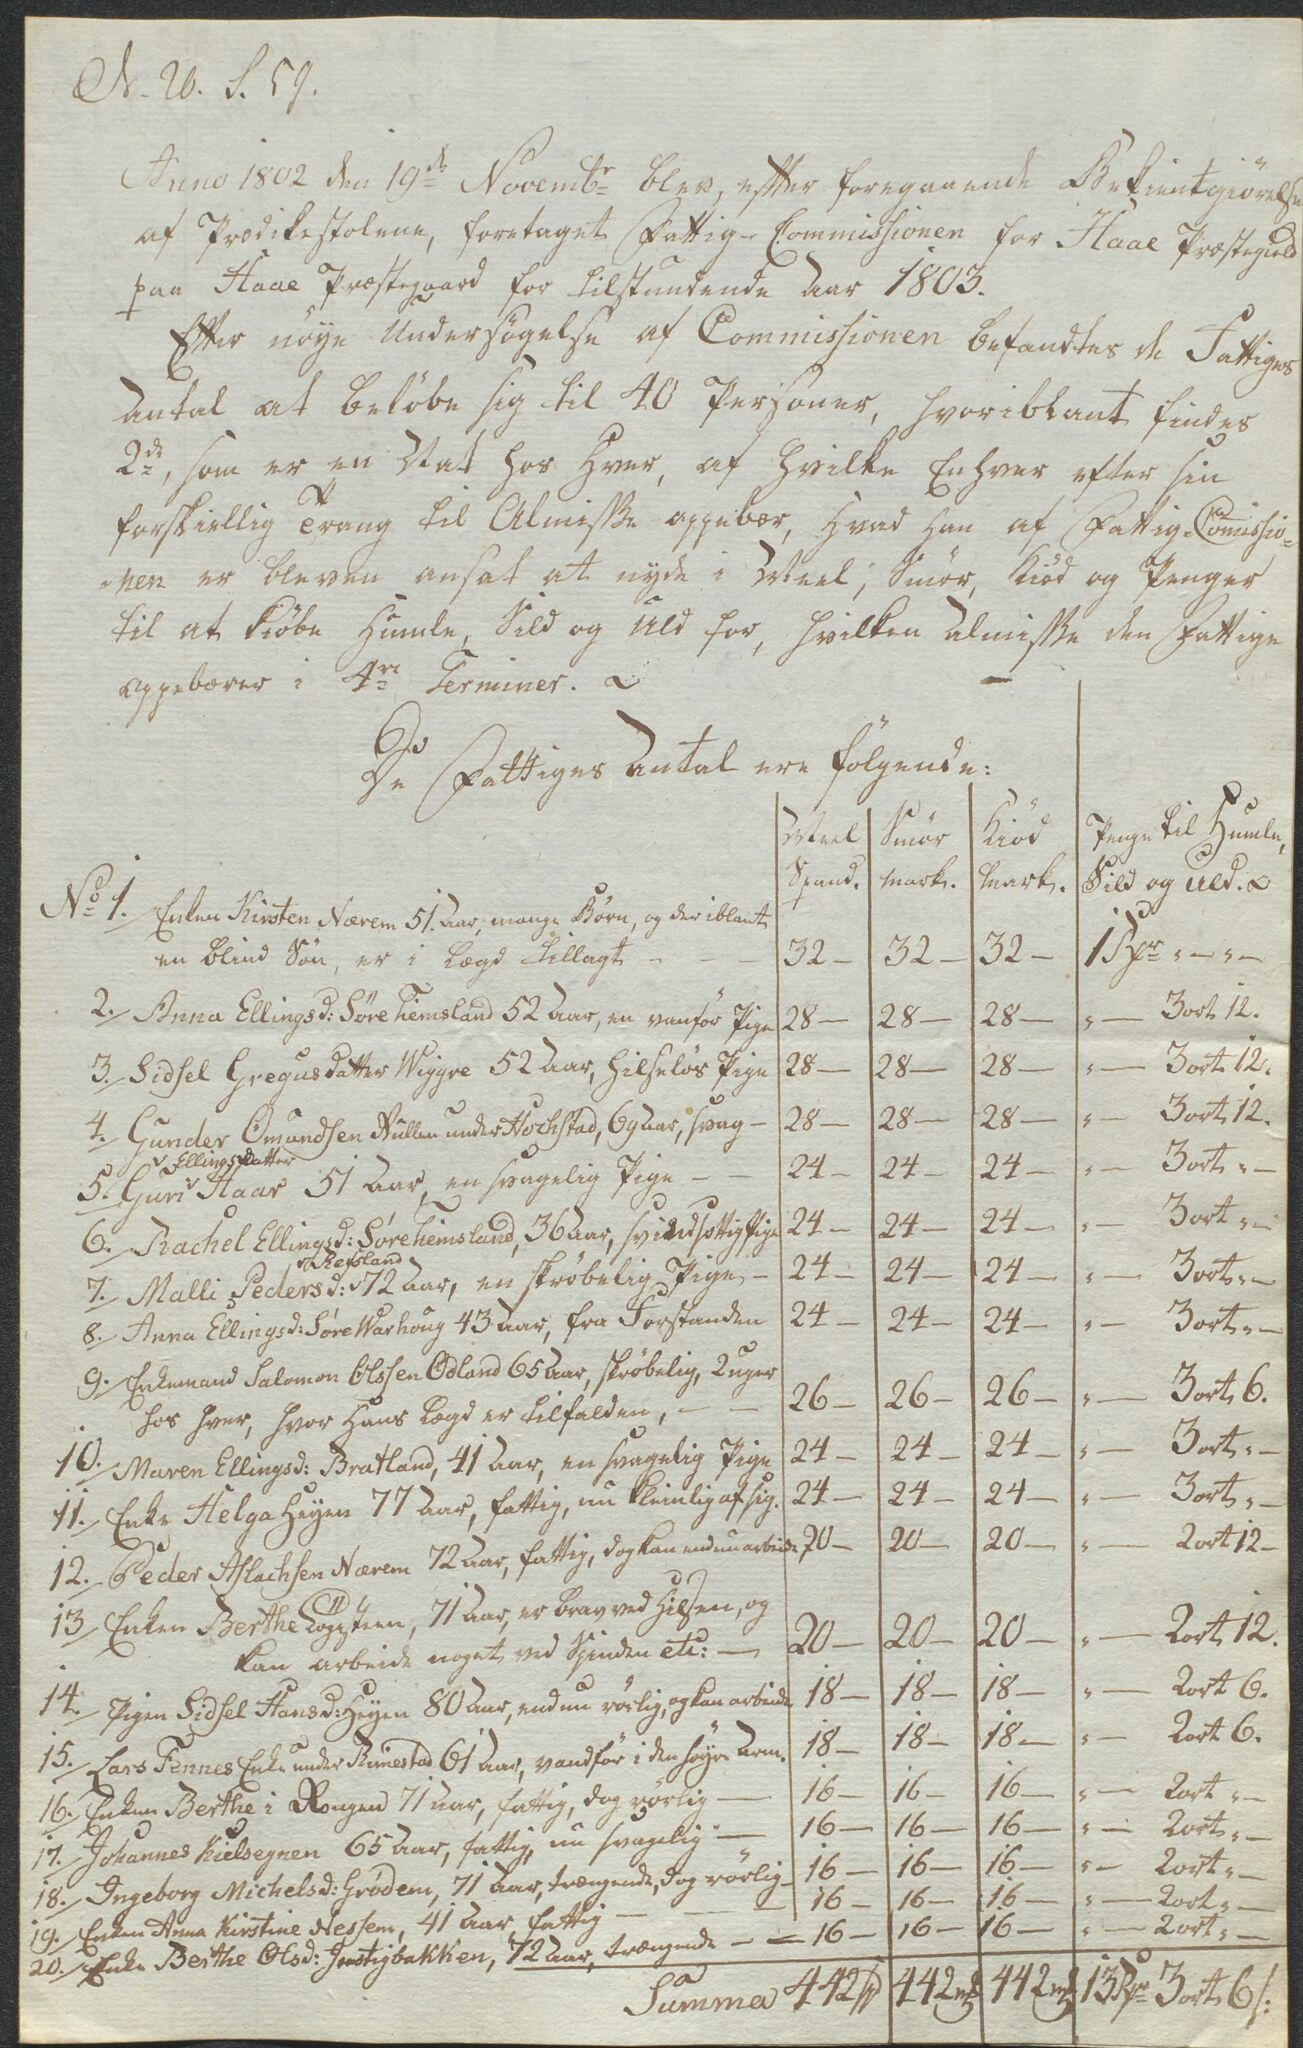 N. 20. S. 59.
Anno 1802 den 19de Novembr blev, efter foregaaende Bekientgiörelse
af Prædikestolene, foretaget Fattig-Commissionen for Haae Præstegield
paa Haae Præstegaard for tilstundende Aar 1803.
Efter nöye Undersögelse af Commissionen befandtes de Fattiges
Antal at belöbe sig til 40 Personer, hvoriblant findes
2de, som er en Nat hos Hver, af hvilke Enhver efter sin
forskiellig Trang til Almisse oppebær, hvad han af Fattig-Commissio-
-nen er bleven ansat at nyde i Meel, Smör, Kiöd og Penger
til at kiöbe Humle, Sild og Uld for, hvilken Almisse den Fattige
oppebærer i 4re Terminer.
De Fattiges Antal ere fölgende:
Meel Spand. | Smör mark. | Kiöd Mark. | Penge til Humle,
Sild og Uld.
No 1. Enken Kirsten Nærem 51. Aar, mange Börn, og deriblant
en blind Sön, er i Lægd tillagt - - - 32 - 32 - 32 - 1 Rdr " - " -
2. Anna Ellingsd: Söre Tiemsland 52 Aar, en vanför Pige 28 - 28 - 28 - " - 3 ort 12.
3. Sidsel Gregusdatter Wiggre 52 Aar, hilselös Pige 28 - 28 - 28 - " - 3 ort 12.
4. Gunder Omundsen Nullen under Hochstad, 69 Aar, svag - 28 - 28 - 28 - " - 3 ort 12.
Ellingsdatter
5. Guri Haar 51 Aar, en svagelig Pige - - 24 - 24 - 24 - " - 3 ort " -
6. Rachel Ellingsd: Söre Tiemsland, 36 Aar, svindsottig Pige 24 - 24 - 24 - " - 3 ort " -
Refsland
7. Malli Pedersd: 72 Aar, en skröbelig Pige - 24 - 24 - 24 - " - 3 ort " -
8. Anna Ellingsd: Söre Warhoug 43 Aar, fra Forstanden 24 - 24 - 24 - " - 3 ort " -
9. Enkemand Salomon Olssen Ödland 65 Aar, skröbelig, 2 uger
hos hver, hvor Hans Lægd er tilfalden, - - 26 - 26 - 26 - " - 3 ort 6.
10. Maren Ellingsd: Bratland, 41 Aar, en svagelig Pige 24 - 24 - 24 - " - 3 ort " -
11. Enke Helga Heyen 77 Aar, fattig, nu kleinlig af sig. 24 - 24 - 24 - " - 3 ort " -
12. Peder Aslachsen Nærem 72 Aar, fattig, dog kan endnu arbeide, 20 - 20 - 20 - " - 2 ort 12 -
13 Enken Berthe 71 Aar, er brav ved Hilsen, og
kan arbeide noget ved Spinden etc: - 20 - 20 - 20 - " - 2 ort 12.
14. Pigen Sidsel Hansd: Heyen 80 Aar, endnu rörlig, og kan arbeide 18 - 18 - 18 - " - 2 ort 6.
15. Lars Tennes Enke under Rimestad 61 Aar, vandför i den höyre Arm. 18 - 18 - 18 - " - 2 ort 6.
16. Enken Berthe i Rongen 71 Aar, fattig, dog rörlig - 16 - 16 - 16 - " - 2 ort " -
17. Johannes Kielsegnen 65 Aar, fattig, nu svagelig - 16 - 16 - 16 - " - 2 ort " -
18. Ingeborg Michelsd: Grödem, 71 Aar, trængende, dog rörlig - 16 - 16 - 16 - " - 2 ort " -
19. Enken Anna Kirstine Nessem, 41 Aar, fattig - - - 16 - 16 - 16 - " - 2 ort " -
20. Enke Berthe Olsd: 72 Aar, trængende - - 16 - 16 - 16 - " - 2 ort " -
Summa 442 442 442 13 Rdr 3 ort 6 s: